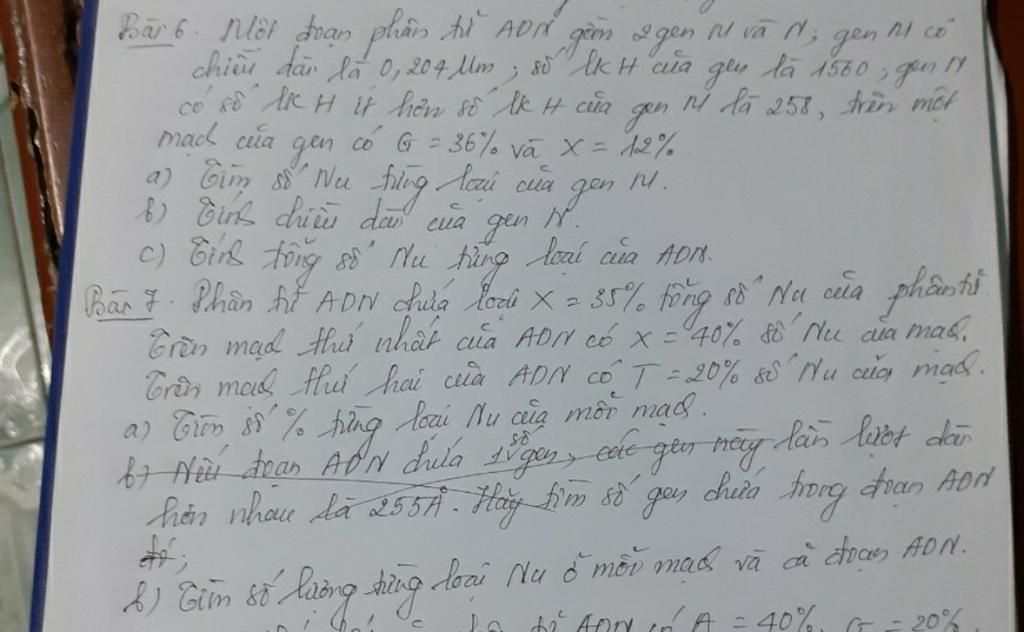 Bài 6. Một đoạn phân tử ADN gồm 2 gen M và N; gen M có
chiều dài là 0,204 Mm; số lk H của gen là 1560, gen N
có số lk H ít hơn số lk H của gen M là 258, trên một
mạch của gen có G = 36% và X = 12%
a) Tìm số Nu từng loại của gen M.
b) Tính chiều dài của gen N.
c) Tính tổng số Nu từng loại của ADN.
Bài 7. Phân tử ADN chứa loại X = 35% tổng số Nu của phân tử
Trên mạch thứ nhất của ADN có X = 40% số Nu của mạch.
Trên mạch thứ hai của ADN có T = 20% số Nu của mạch.
a) Tìm số % từng loại Nu của mỗi mạch.
b) Nếu đoạn ADN chứa 1 số gen, các gen này lần lượt dài
hơn nhau là 255Å. Hãy tìm số gen chứa trong đoạn ADN
đó;
b) Tìm số lượng từng loại Nu ở mỗi mạch và cả đoạn ADN.
ADN có A = 40%, G = 20%